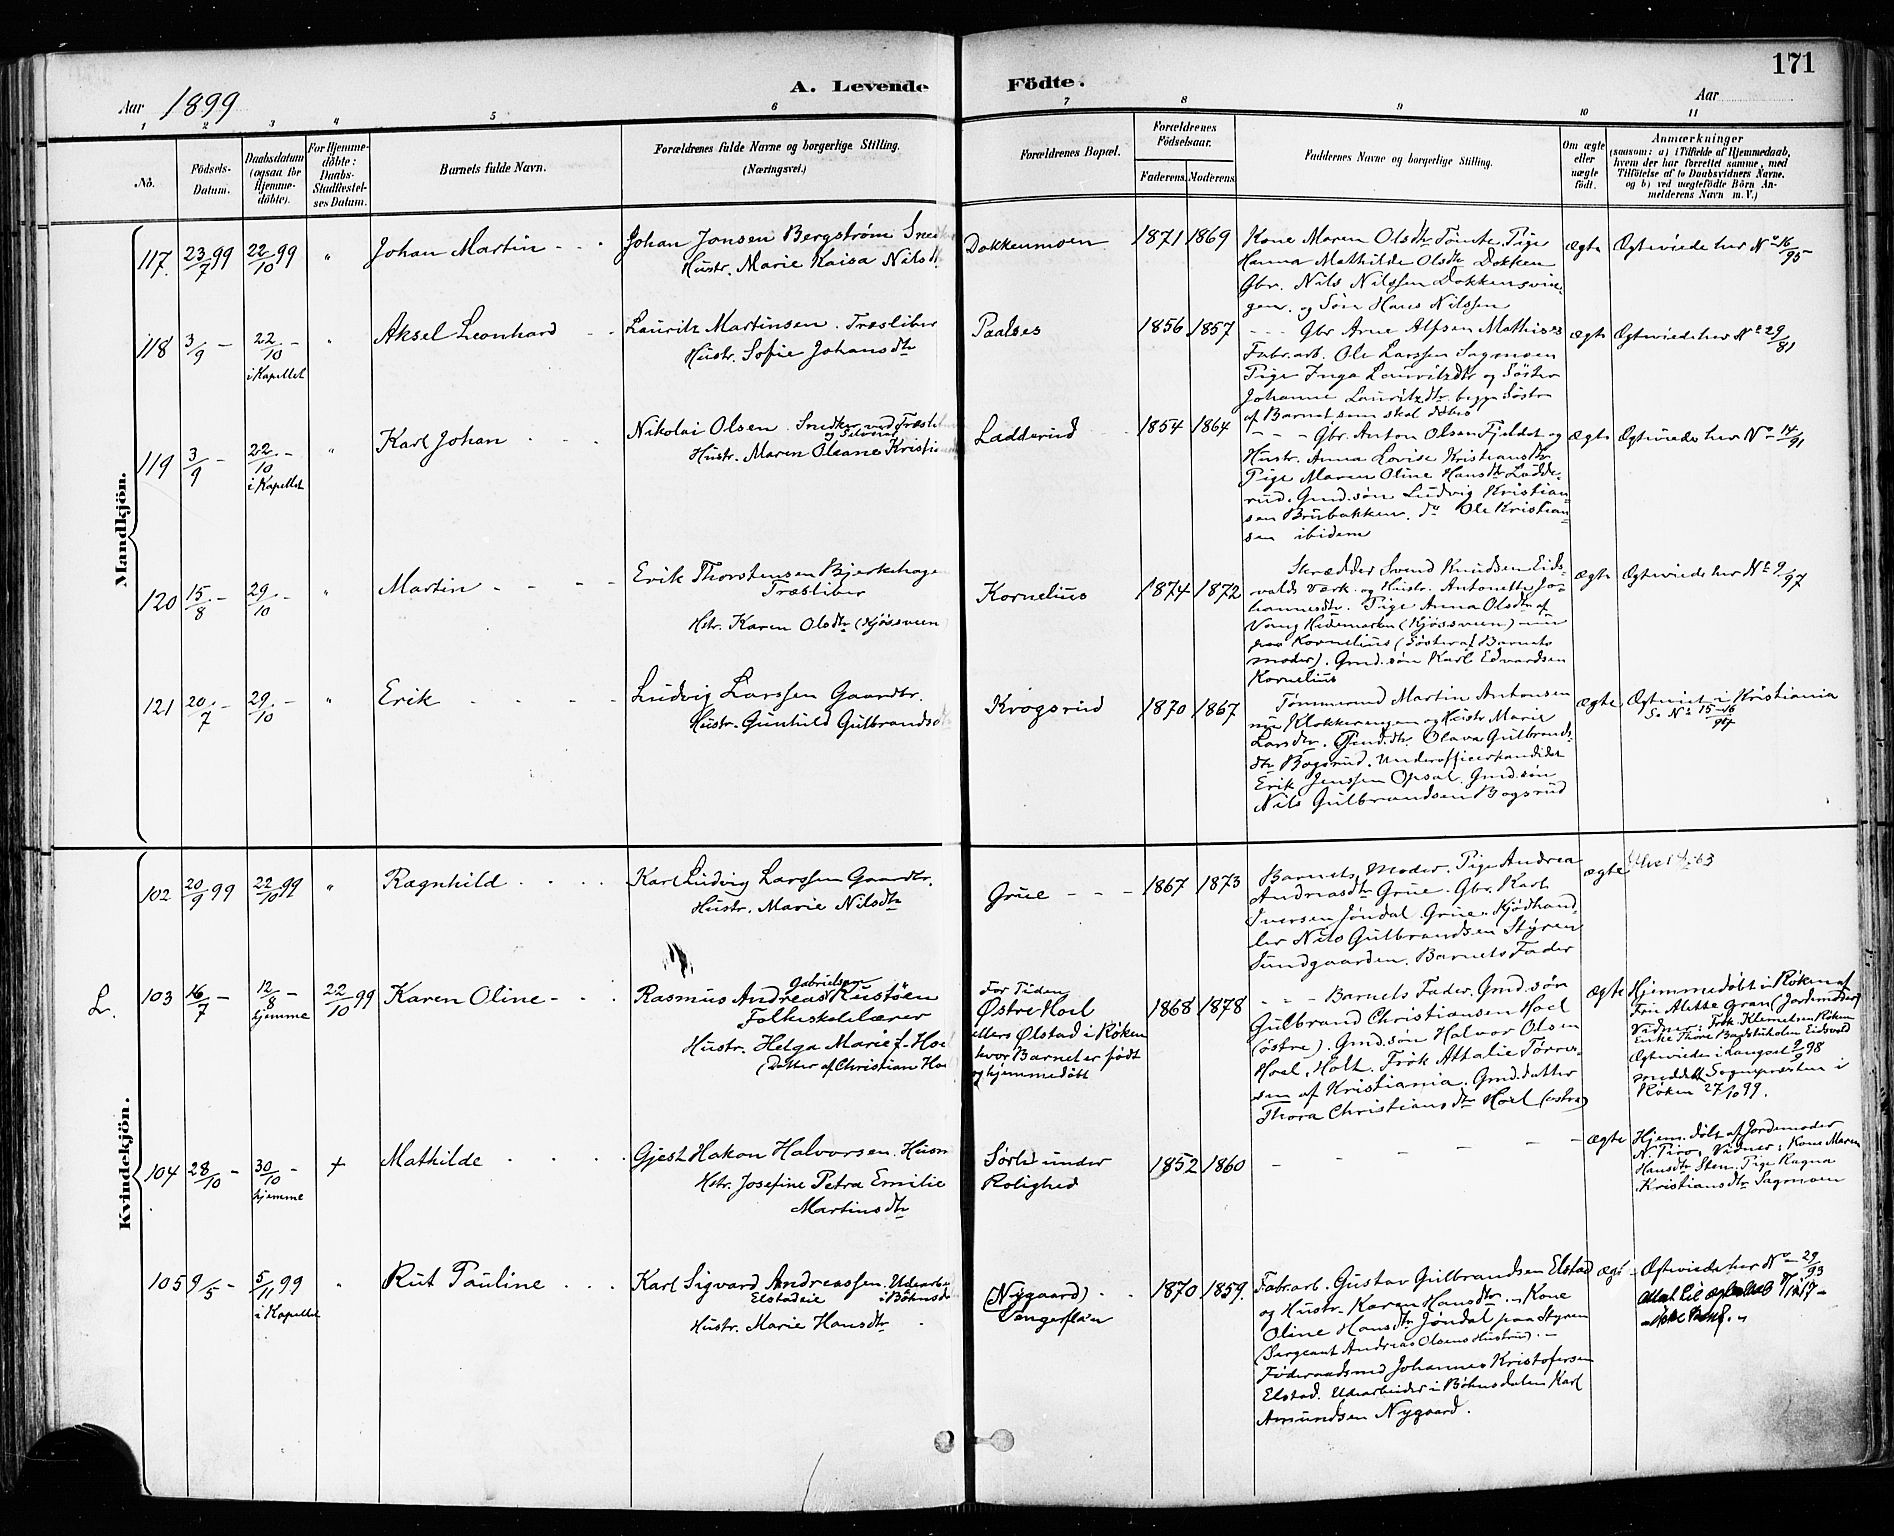 171
A. Levende Födte.
Aar 1899
Aar
1 2 3 4 5 6 7 8 9 10 11
No.
Födsels-Datum.
Daabsdatum (ogsaa for Hjemmedöbte).
For Hjemmedöbte: Daabs-Stadfestelses Datum.
Barnets fulde Navn.
Forældrenes fulde Navne og borgerlige Stilling. (Næringsvei.)
Forældrenes Bopæl.
Forældrenes Födselsaar.
Faderens. Moderens.
Faddernes Navne og borgerlige Stilling.
Om ægte eller uægte födt.
Anmærkninger
(saasom: a) i Tilfælde af Hjemmedaab,
hvem der har forrettet samme, med
Tilföielse af to Daabsvidners Navne.
og b) ved uægtefödte Börn An-
melderens Navn m. V.)
Mandkjön.
117. 23/7 99 22/10 99 "
Johan Martin
Johan Jonsen Bergstrøm
Hustr. Marie Kaisa Nilsd
Dokkenmoen
1871 1869
Kone Maren Olsdtr Tømte. Pige
Hanna Mathilde Olsdtr Dokken
Gbr. Nils Nilssen Dokkensvin-
gen. og Søn Hans Nilssen
ægte
Ægteviede her No 16/95
118 3/9 - 22/10 - i Kapellet "
Aksel Leonhard
Lauritz Martinsen. Træsliber
Hustr. Sofie Johansdtr
Paalses
1856 1857
- - - Gbr Arne Alfsen Mathises
Fabr.arb. Ole Larssen Sagmoen
Pige Inga Lauritzdtr og Søster
Johanne Lauritzdtr begge Søstre
af Barnet som skal døbes
ægte
Ægteviede her No 29/81
119 3/9 22/10 - i Kapellet "
Karl Johan
Nikolai Olsen. Snedker ved Træslib
Hustr. Maren Oleane Kristi
Ladderud
1854 1864
- - - Gbr. Anton Olsen Fjeldet og
Hustr. Anna Lovise Kristiansdtr
Pige Maren Oline Hansdtr Ladde-
rud. Gmd.søn Ludvig Kristian-
sen Brubakken. do Ole Kristian-
sen ibidem
ægte
Ægteviede her No 14/91
120 15/8 - 29/10 - "
Martin
Erik Thorstensen Bjerkehage
Træsliber
Hstr. Karen Olsdtr (Kjøsveen)
Kornelius
1874 1872
Skrædder Svend Knudsen Eids-
volds Værk og Hustr. Antonette Jo-
hannesdtr. Pige Anna Olsdtr af
Vang Hedemarken (Kjøssveen) - nu
paa Kornelius (Søster af Barnets
moder). Gmd.søn Karl Edvardsen
Kornelius
ægte
Ægteviede her No 9/97
121 20/7 - 29/10 - "
Erik
Ludvig Larssen Gaardbr.
Hustr. Gunhild Gulbrandsd
Krogsrud
1870 1867
Tømmermd Martin Antonsen
nu Klokkerengen og Hustr Marie
Larsdtr. Gmd.dtr. Olava Gulbrands-
dtr Bogsrud. Underofficerkandidat
Erik Jenssen Opsal. Gmd.søn
Nils Gulbrandsen Bogsrud
ægte
Ægteviet i Kristiania
Kvindekjön.
102 20/9 99 22/10 99 "
Ragnhild
Karl Ludvig Larssen Gaardbr.
Hustr. Marie Nilsdtr
Grue - - -
1867 1873
Barnets Moder. Pige Andrea
Andreasdtr Grue. Gbr. Karl
Iversen Jøndal. Grue. Kjødhand-
ler Nils Gulbrandsen Styren
Sundgaarden. Barnets Fader
ægte
L. 103 16/7 - 12/8 - hjemme 22/10 99
Karen Oline
Gabrielsen
Rasmus Andreas Rustøen
Folkeskolelærer
Hustr. Helga Marie f. Ho
(Datter af Christian Ho
For Tiden
Østre Hoel
ellers Ølstad i Røken
hvor Barnet er født
og hjemmedøbt
1868 1878
- - - Barnets Fader. Gmd.søn
Gulbrand Christiansen Hoel
(østre). Gmd.søn Halvor Olsen
Hoel, Holt. Frøk Attalie Tørres-
sen af Kristiania. Gmd.datter
Thora Christiansdtr Hoel (østre)
ægte
Hjemmedøbt i Røken af
Fru Alette Gran (Jordemoder)
Vidner: Frøk Klemetsen Røken
Enke Thore Eidsvold
Ægteviede i Langset 2/9 98
Sognepræsten i
Røken 27/10 99.
104 28/10 - 30/10 - hjemme +
Mathilde
Gjest Hakon Halvorsen. Husm
Hstr. Josefine Petra Emilie
Martinsdtr
Sørli under
Rolighed
1852 1860
- - - - - -
ægte
Hjem.døbt af Jordemoder
N. Piro, Vidner: Kone Maren
Hansdtr Sten. Pige Ragna
Kristiansdtr Sagmoen
105 9/5 - 5/11 99 i Kapellet "
Rut Pauline
Karl Sigvard Andreassen. Udearbei
Elstadeie i Bøhnsd
Hustr. Marie Hansdtr
(Nygaard)
Vengerfløen
1870 1859.
Fabr.arb. Gustav Gulbrandsen Elstad
og Hustr. Karen Hansdtr. - Kone
Oline Hansdtr Jøndal paa Styren
(Sergeant Andreas Olsens Hustru). -
Føderaadsmd Johannes Kristofersen
Elstad. Udearbeider i Bøhnsdalen Karl
Amundsen Nygaard.
ægt
Ægteviede her No 29/93